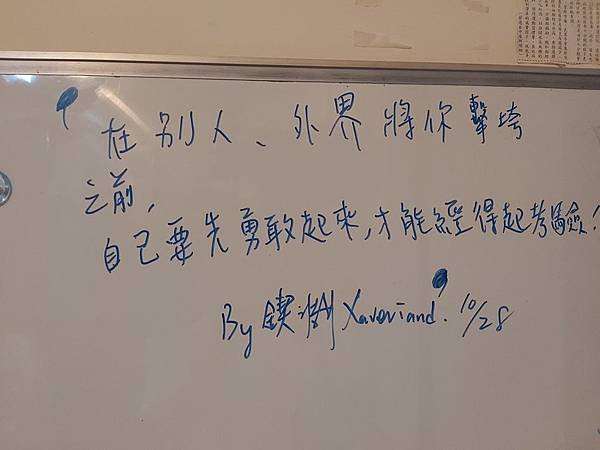 在別人、外界將你擊垮
之前,
自己要先勇敢起來,才能經得起考驗!
By 鍥洲 Xaveriand. 10/28